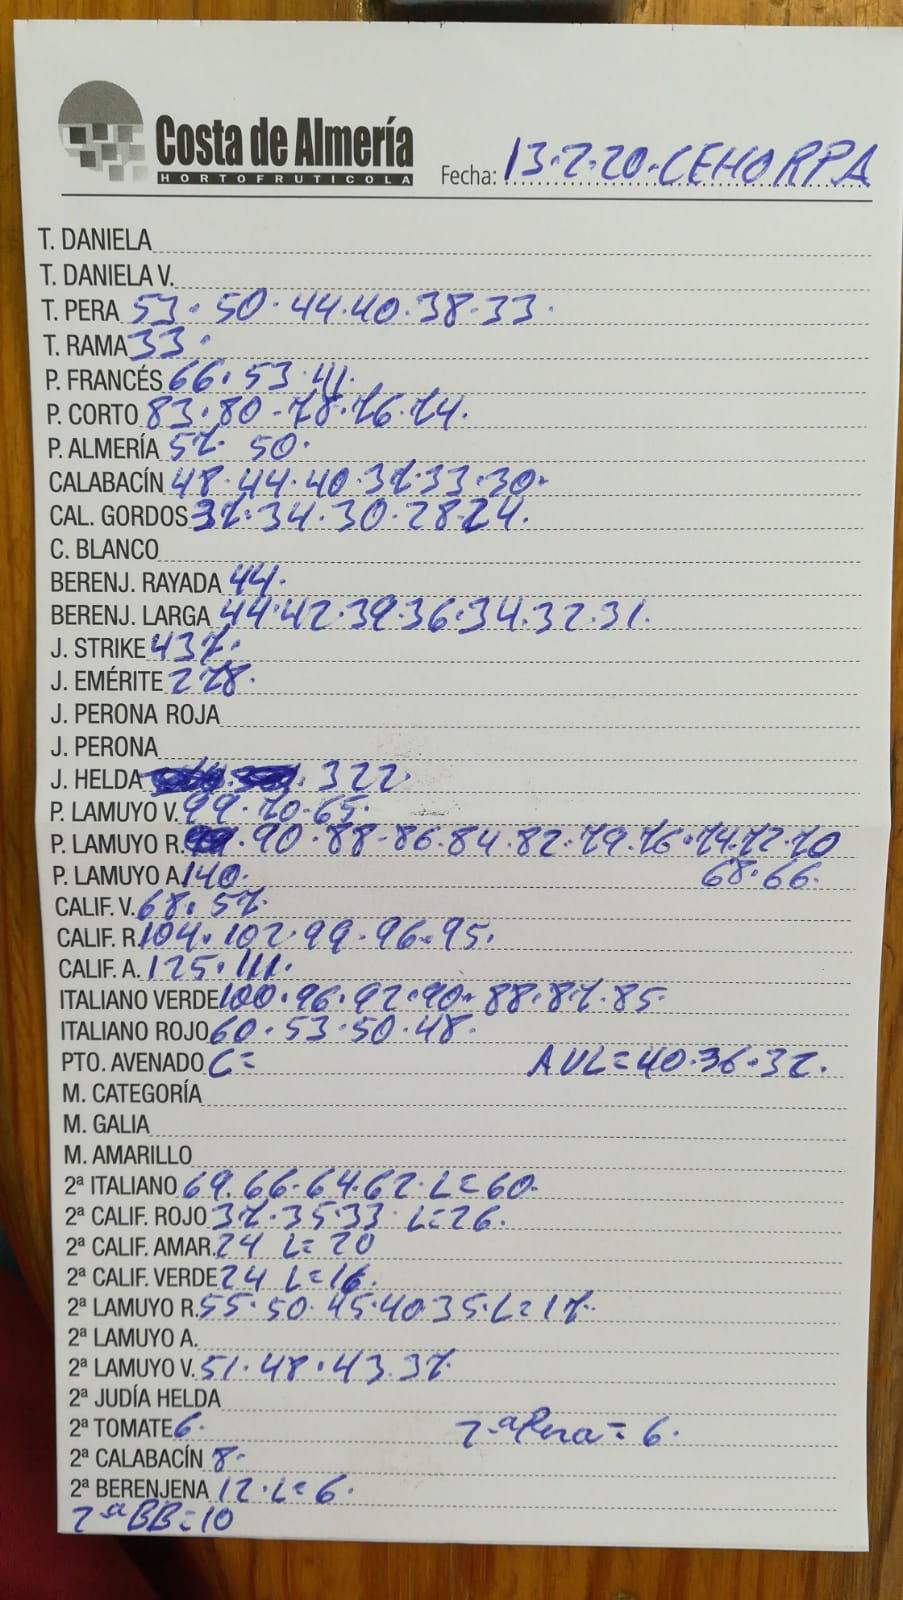 Costa de Almería
HORTOFRUTICOLA
Fecha: 13.2.20.CEHORPA
T. DANIELA
T. DANIELA V.
T. PERA 53. 50. 44.40.38.33.
T. RAMA 33.
P. FRANCÉS 66. 53.41.
P. CORTO 83.80-78.76.74.
P. ALMERÍA 57. 50.
CALABACÍN 48.44.40.37.33.30.
CAL. GORDOS 37.34.30.28.24.
C. BLANCO
BERENJ. RAYADA 44.
BERENJ. LARGA 44.42.39.36.34.32.31.
J. STRIKE 437.
J. EMÉRITE 278.
J. PERONA ROJA
J. PERONA
J. HELDA 322.
P. LAMUYO V. 99.70.65.
P. LAMUYO R. .90.88-86.84.82.79.76.74.72.70
P. LAMUYO A. 140. 68.66.
CALIF. V. 68. 57.
CALIF. R. 104. 102.99.96.95.
CALIF. A. 125.111.
ITALIANO VERDE 100.96.92.90.88.87.85.
ITALIANO ROJO 60.53.50.48.
PTO. AVENADO C= AVL=40.36.32.
M. CATEGORÍA
M. GALIA
M. AMARILLO
2ª ITALIANO 69.66.64.62.L=60.
2ª CALIF. ROJO 37.35.33. L=26.
2ª CALIF. AMAR. 24 L=20
2ª CALIF. VERDE 24 L=16.
2ª LAMUYO R. 55.50.45.40.35.L=17.
2ª LAMUYO A.
2ª LAMUYO V. 51.48.43.37.
2ª JUDÍA HELDA
2ª TOMATE 6. 2ªPera=6.
2ª CALABACÍN 8.
2ª BERENJENA 12.L=6.
2ªBB=10